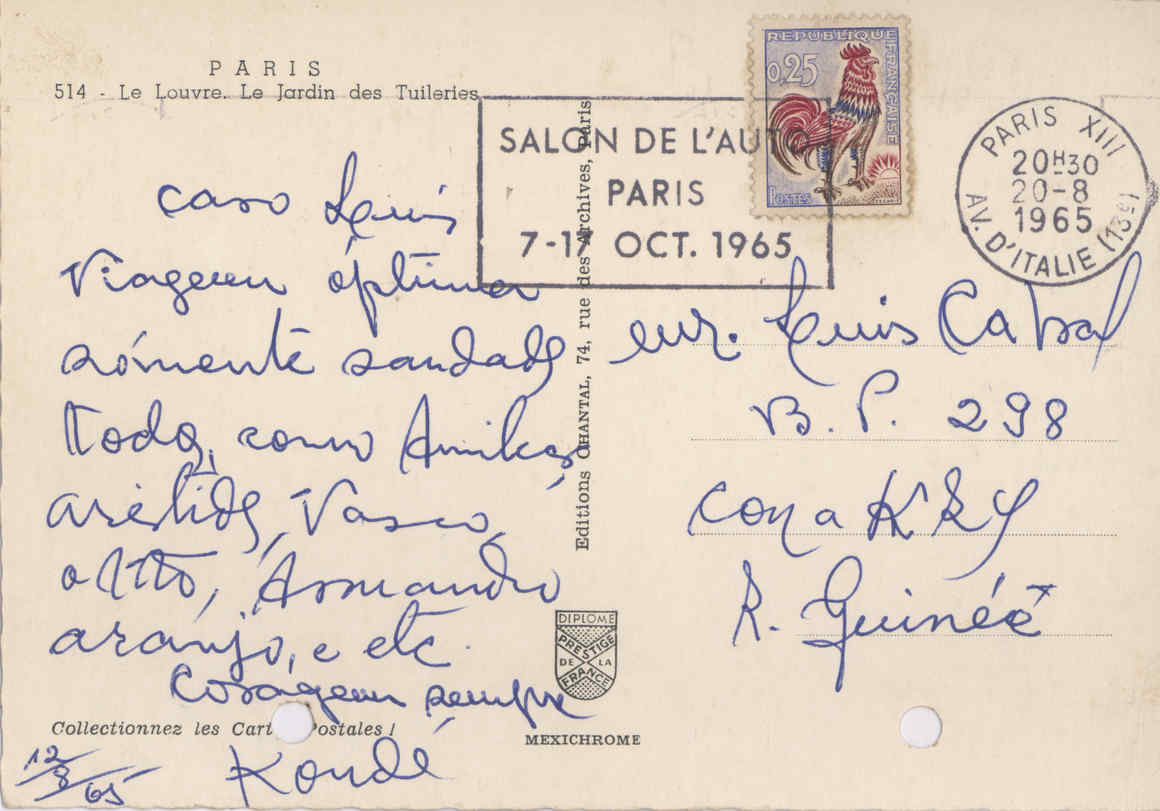 PARIS
514 - Le Louvre. Le Jardin des Tuileries
caso Luis
Viagem óptima
sómente saudads
todos, como Amilcar,
aristids, Vasco,
otto, Armando
araujo, e etc.
Coragem sempre
Kondé
12/8/65
Collectionnez les Cartes Postales !
Editions CHANTAL, 74, rue des Archives, Paris
DIPLOME
PRESTIGE
DE LA
FRANCE
MEXICHROME
SALON DE L'AUTO
PARIS
7-17 OCT. 1965
REPUBLIQUE FRANÇAISE
0,25
POSTES
PARIS XIII
20H30
20-8
1965
AV. D'ITALIE (13e)
Luis Cabral
B. P. 298
Conakry
R. Guinée